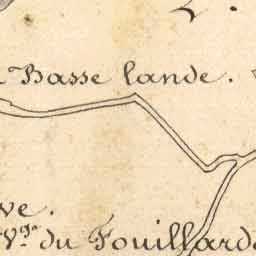 Basse lande.
ve.
V.ge du Fouillard